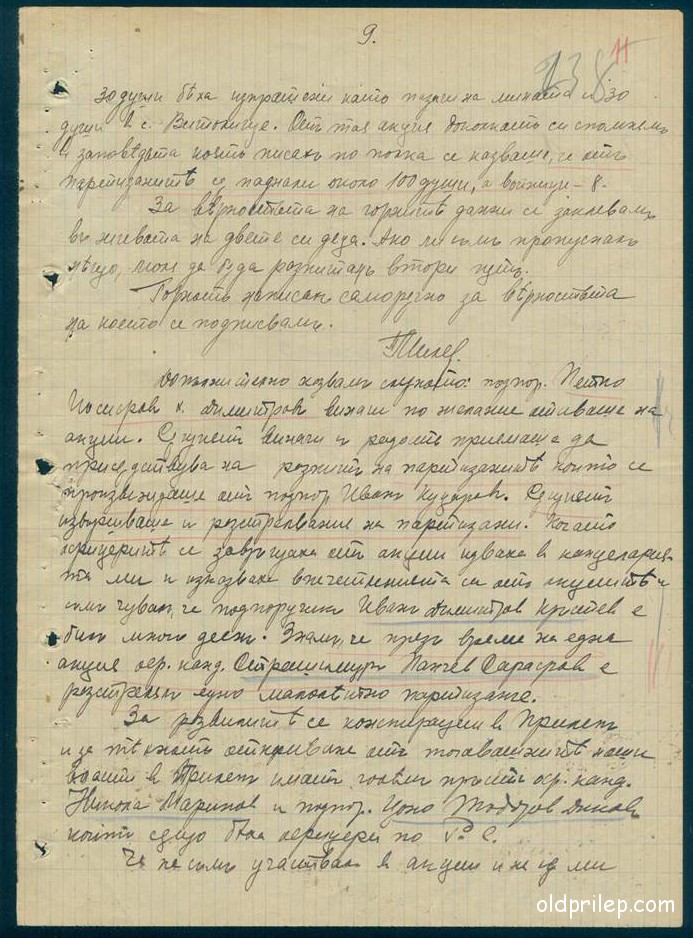 9.
238 11
30 души бѣха изпратени като на мината и 30
души в с. Витолище. Отъ тая акция доколкото си спомнямъ
в заповѣдьта която писахъ по полка се казваше, че отъ
партизанитѣ сѫ паднали около 100 души, а войници - 8.
За вѣрностьта на горнитѣ данни се заклевамъ
въ живота на двете си деца. Ако ли съмъ пропусналъ
нѣщо, моля да бѫда разпитанъ втори пѫть.
Горното написахъ саморѫчно за вѣрностьта
на което се подписвамъ.
Допълнително казвамъ следното: подпор. Петко
Димитров винаги по желание отиваше на
акции. Сѫщиятъ винаги с радость приемаше да
присѫствува на разпити на партизанитѣ които се
произвеждаше отъ подпор Иван Куцаров. Сѫщиятъ
извършваше и разстрелвания на партизани. Когато
офицеритѣ се завръщаха отъ акции идваха в канцелария-
та ми и изказваха впечатленията си отъ акциитѣ и
съмъ чувалъ, че подпоручикъ Иванъ Димитров Кръстев е
билъ много десенъ. Зная, че презъ време на една
акция офр. канд. Страшимиръ Панчев Сарафов е
разстрелялъ едно малолѣтно партизанче.
За развитието се конспирации в Прилепъ
и за тѣхното откриване отъ тогавашнитѣ наши
власти в Прилепъ иматъ голѣмъ пръстъ оф. канд.
Никола Маринов и подпор. Цоко Тодоров Диков
които сѫщо бѣха офицери по Р. С.
Че не съмъ участвалъ в акции и не сѫ ми
oldprilep.com